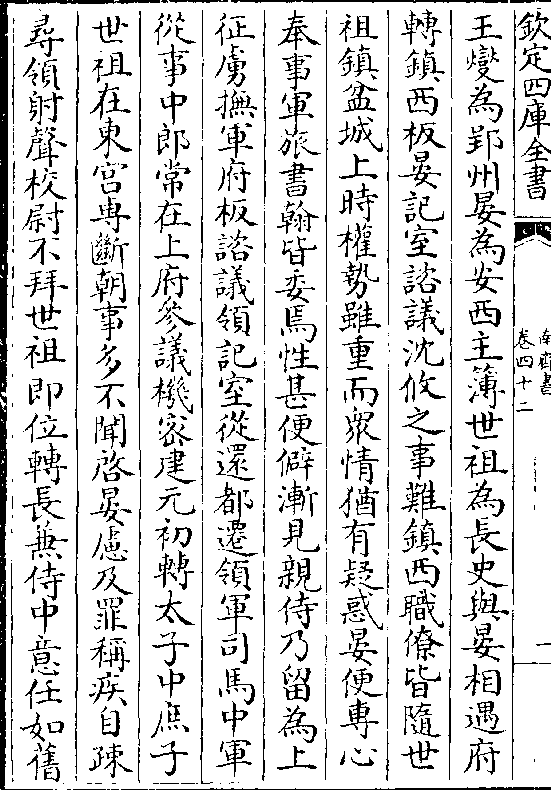 王燮為郢州晏為安西主簿世祖為長史與晏相遇府
轉鎮西板晏記室諮議沈攸之事難鎮西職僚皆隨世
祖鎮盆城上時權勢雖重而衆情猶有疑惑晏便專心
奉事軍旅書翰皆委焉性甚便僻漸見親侍乃留為上
征虜撫軍府板諮議領記室從還都遷領軍司馬中軍
從事中郎常在上府參議機密建元初轉太子中庶子
世祖在東宫専斷朝事多不聞啓晏慮及罪稱疾自疎
尋領射聲校尉不拜世祖即位轉長兼侍中意任如舊
欽定四庫全書
南齊書
卷四十二
一